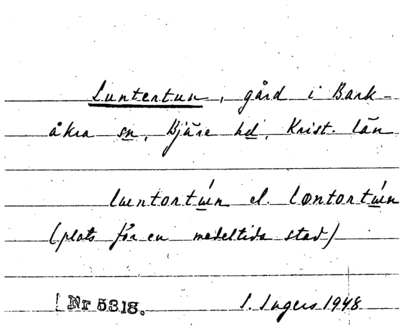 Luntertun, gård i Bark-
åkra sn, Bjäre hd, Krist. län
luntortu̲n el. løntortu̲n
(plats för en medeltida stad)
[Nr 5318. I. Ingers 1948